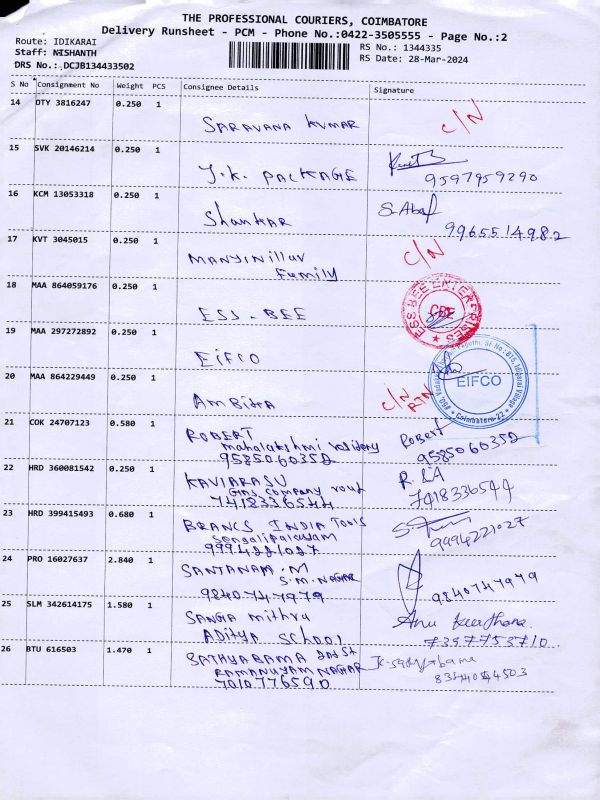 THE PROFESSIONAL COURIERS, COIMBATORE
Delivery Runsheet - PCM - Phone No.:0422-3505555 - Page No.:2
Route: IDIKARAI
Staff: NISHANTH
DRS No.: DCJB134433502
RS No.: 1344335
RS Date: 28-Mar-2024
S No Consignment No Weight PCS Consignee Details Signature
14 OTY 3816247 0.250 1
SARAVANA KUMAR C/N
15 SVK 20146214 0.250 1
J.K. PACKAGE 9597959290
16 KCM 13053318 0.250 1
Shankar
9965514982
17 KVT 3045015 0.250 1 C/N
Family
18 MAA 864059176 0.250 1
ESS-BEE
ESS BEE ENTERPRISES
CBE
19 MAA 297272892 0.250 1
EIFCO
EIFCO
Coimbatore-22
20 MAA 864229449 0.250 1
Ambika C/N
RTN
21 COK 24707123 0.580 1
ROBERT Robert
mahalakshmi
9585060352 9585060352
22 HRD 360081542 0.250 1
KAVIARASU
Gas company
7418336544 7418336544
23 HRD 399415493 0.680 1
BRANCS INDIA TOOLS
Sengalipalayam
9994221027 9994221027
24 PRO 16027637 2.840 1
SANTANAM.M
S.M.NAGAR
9840747979 9840747979
25 SLM 342614175 1.580 1
SANGIA mithru
ADITYA SCHOOL 7397753710
26 BTU 616503 1.470 1
SATHYABAMA 2nd St
RAMANUYAM NAGAR
7010776590 8344054503